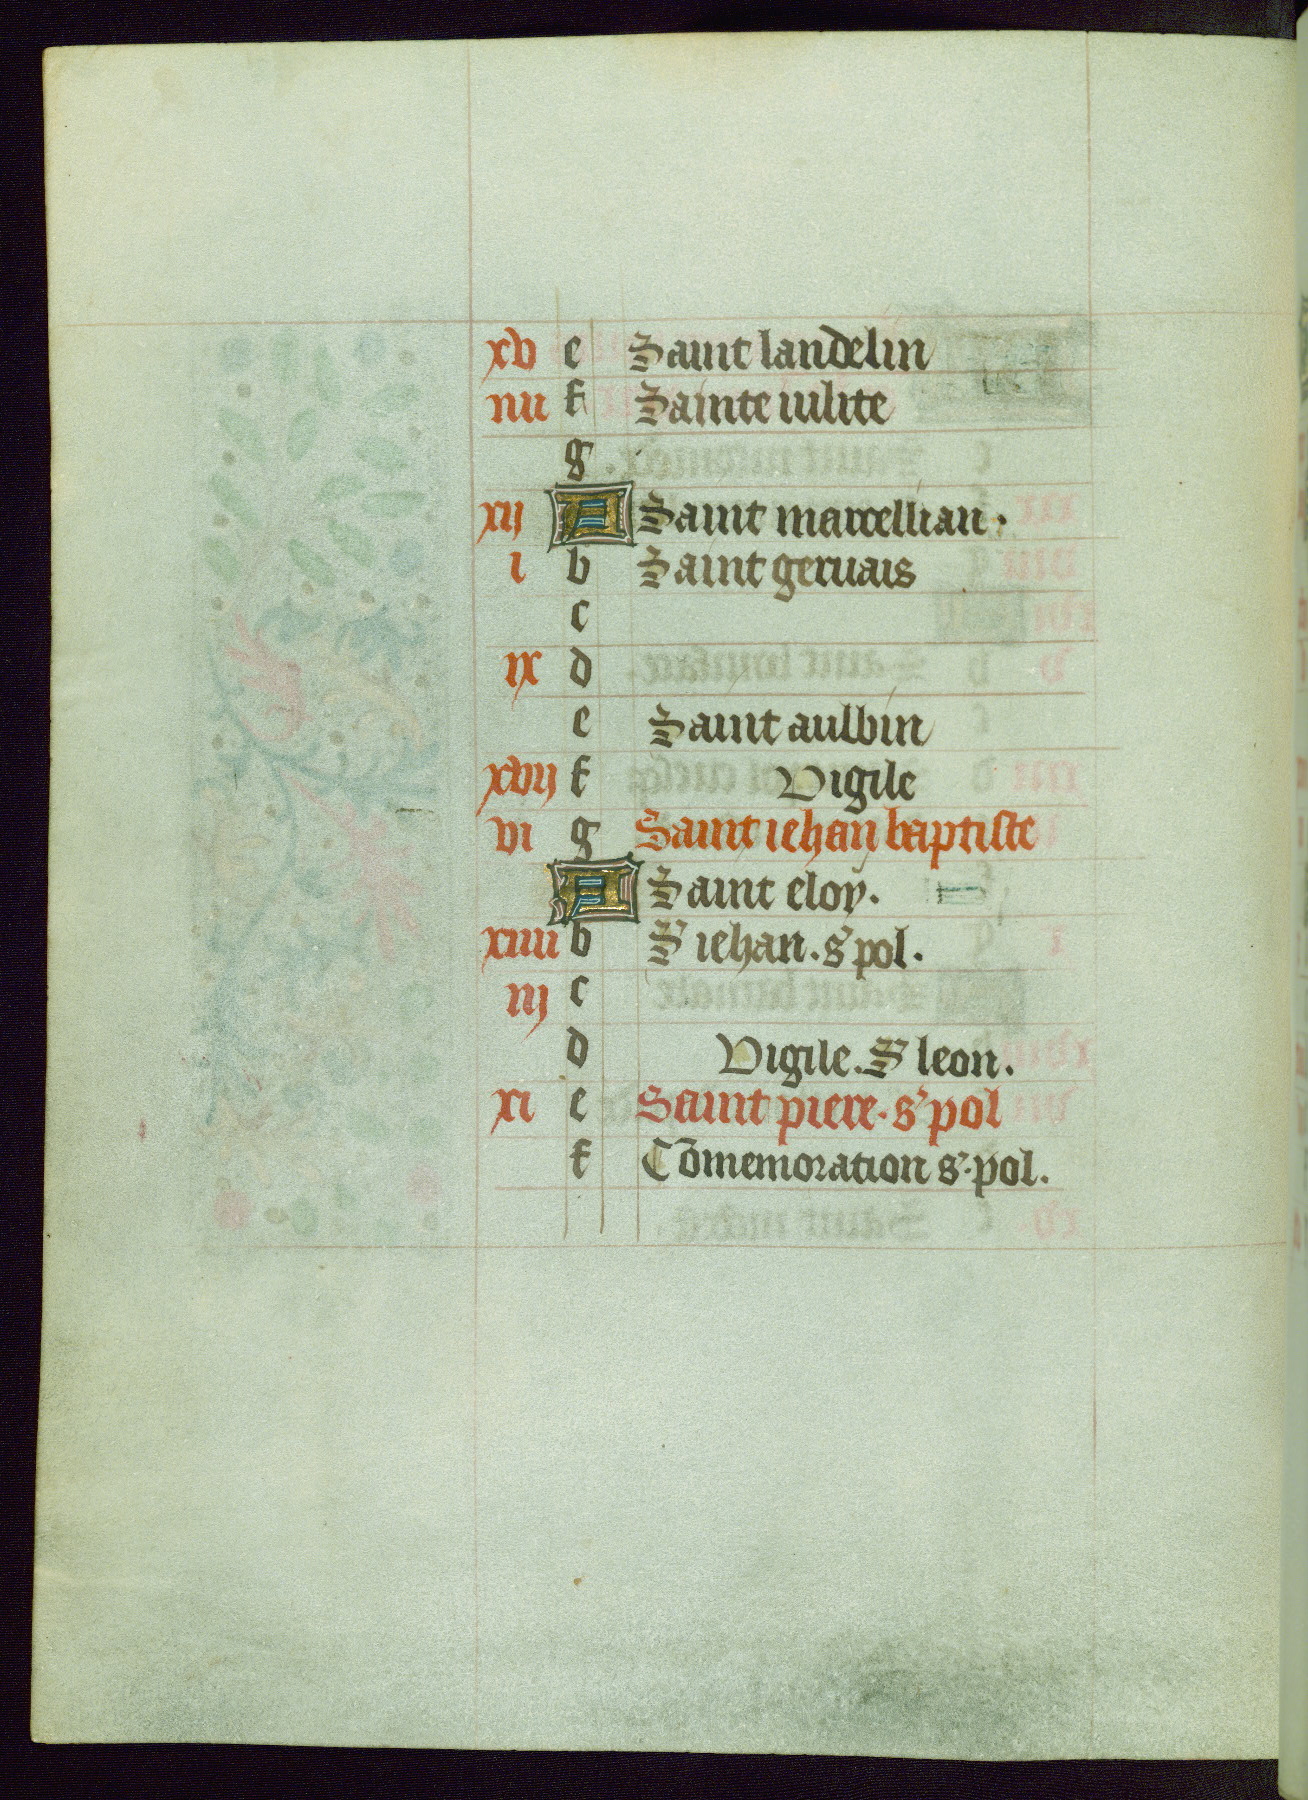 xv e Saint landelin
iiii f Sainte iulite
g
xij A Saint marcellian.
i b Saint geruais
c
ix d
e Saint aulbin
xvij f Vigile
vi g Saint iehan baptiste
A Saint eloy.
xiiii b S' iehan. s' pol.
iij c
d Vigile. S' leon.
xi e Saint piere. s' pol
f Cōmemoration s'. pol.